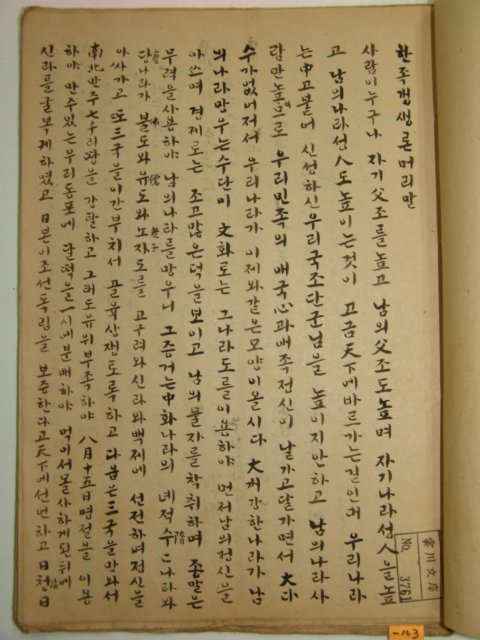 한족갱생론머리말
사람이누구나 자기父조를높고 남의父조도높며 자기나라성人을높
고 남의나라성人도높이는것이 고금天下에바르가는길인대 우리나라
는中고붙어 신성하신우리국조단군님을 높이지안하고 남의나라사
람만높으로 우리민족의 애국心과애족정신이 날가고달가면서 大다
수가없어저서 우리나라가 이제와같은모양이올시다 大개강한나라가남
의나라망우는수단이 文화로는 그나라도를이용하야 먼저남의정신을
아스며 경제로는 조고많은덕을보이고 남의물자를착취하며 종말은
무력을사용하야 남의나라를망우니 그증거는中화나라의 녜적수隋나라와
당唐나라가 불佛도와유儒도와노자老子도를 고구려와신라와백제에 선전하며정신을
아싸가고 또三국을이간부처서 골육상쟁토록하고 다음은三국을만와서
南北만주七千리땅을 강탈하고 그래도유위부족하야 八月十五日명절을 이용
하야 만주있는우리동포에 달떡을一시에분배하야 먹이서몰사하게된뒤에
신라를굴복게하였고 日본이조선독립을 보준한다고天下에선언하고 日청日
愛川文庫
No. 3761
-103